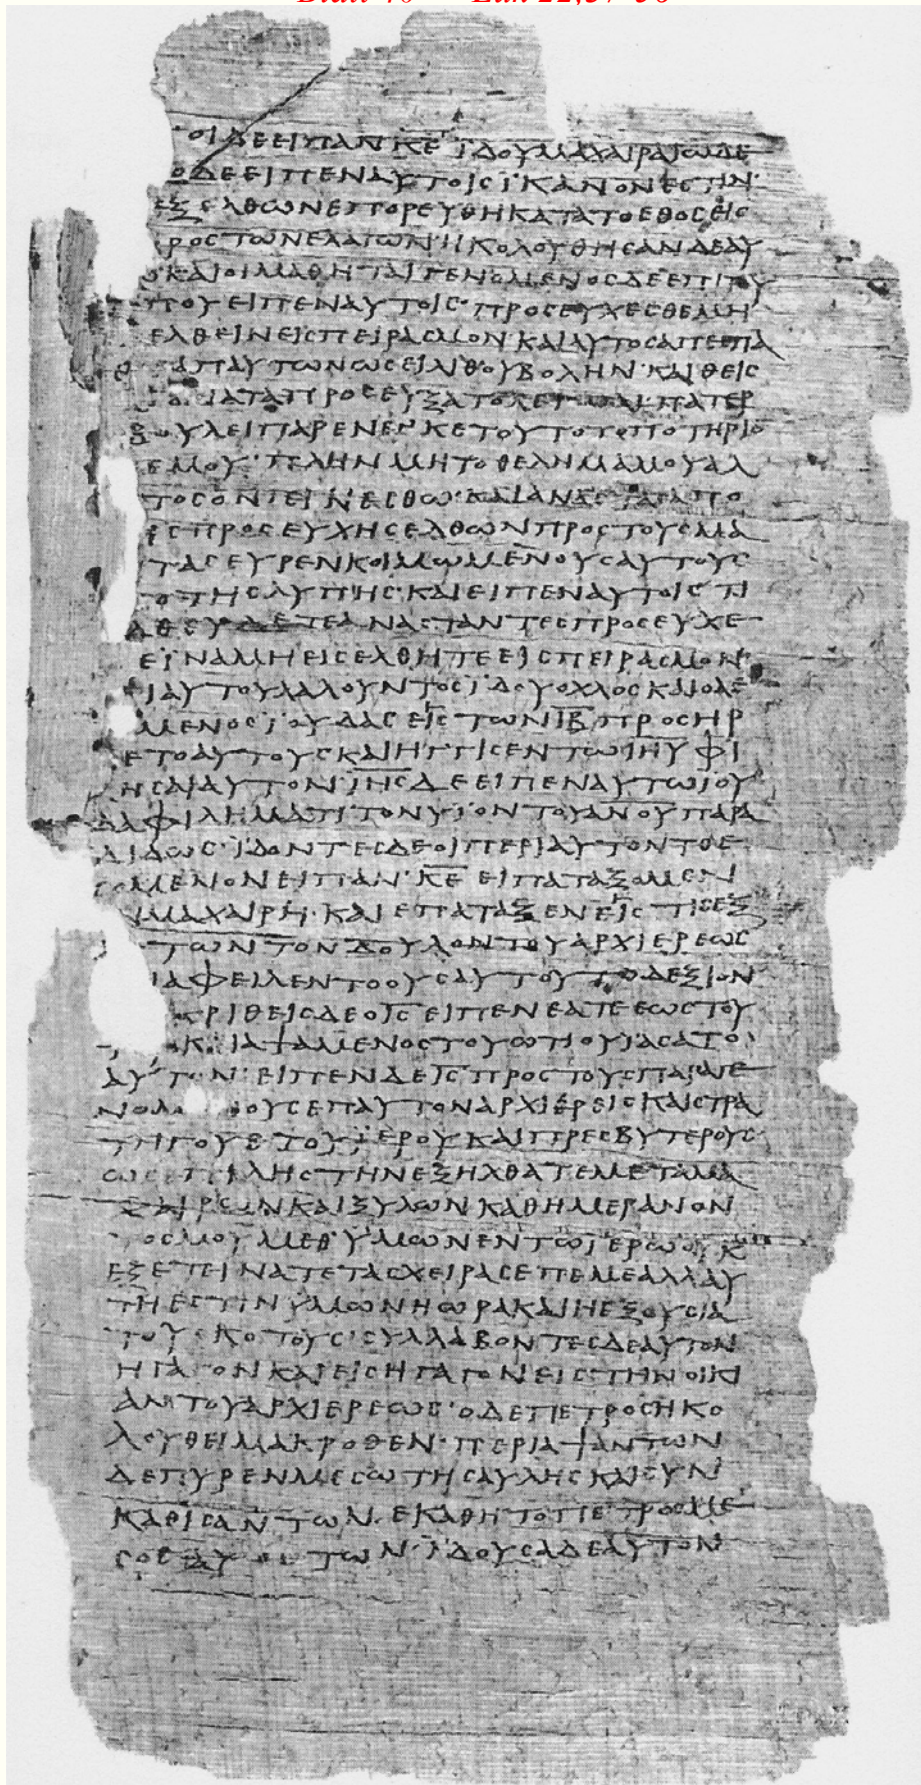 οιδεειπανκ̅ε̅ϊδουμαχαιραιωδε
οδεειπεναυτοιςϊκανονεστιν·
εξελθωνεπορευθηκατατοεθοςεις
ροςτωνελαιωνηκολουθησανδεαυ
καιοιμαθηταιγενομενοςδεεπιτου
πουειπεναυτοις·προσευχεσθεμη
ελθεινειςπειρασμονκαιαυτοςαπεσπα
απαυτωνωσειλιθουβολην·καιθεις
προσευξατο πατερ
βουλειπαρενενκετουτοτοποτηριο
εμου·πληνμητοθελημαμουαλ
τοσονγεινεσθω·καιαναστασαπο
ςπροσευχηςελθωνπροςτουςμα
ταςευρενκοιμωμενουςαυτους
τοτηςλυπης·καιειπεναυτοιςτι
ανασταντεςπροσευχε
εϊναμηεισελθητεειςπειρασμον·
ιαυτουλαλουντοςϊδουοχλοςκαιολε
μενοςϊουδαςειςτωνι̅β̅προσηρ
ετοαυτουςκαιηγγισεντωι̅η̅υ̅φι
ησαιαυτονι̅η̅ς̅δεειπεναυτωιου
δαφιληματιτονυϊοντουα̅ν̅ο̅υ̅παρα
διδως·ϊδοντεςδεοιπεριαυτοντοε
σομενονειπαν·κ̅ε̅ειπαταξομεν
νμαχαιρη·καιεπαταξενειςτιςεξ
τωντονδουλοντουαρχιερεως
ιαφειλεντοουςαυτουτοδεξιον
κριθειςδεοι̅ς̅ειπενεατεεωςτου
κ ιαψαμενοςτουωτιουϊασατο
αυτον·ειπενδει̅ς̅προςτουςπαραγε
νομ ουςεπαυτοναρχιερειςκαιστρα
τηγουςτουϊερουκαιπρεσβυτερους
ωςεπιληστηνεξηλθατεμεταμα
χαιρωνκαιξυλωνκαθημερανον
τοςμουμεθυμωνεντωϊερωουκ
εξετεινατεταςχειραςεπεμεαλλαυ
τηεστινυμωνηωρακαιηεξουσια
τουσκοτους·συλλαβοντεςδεαυτον
ηγαγονκαιεισηγαγονειςτηνοικι
αντουαρχιερεως·οδεπετροςηκο
λουθειμακροθεν·περιαψαντων
δεπυρενμεσωτηςαυληςκαισυν
καθισαντων·εκαθητοπετροςμε
σοςαυτων·ϊδουσαδεαυτον